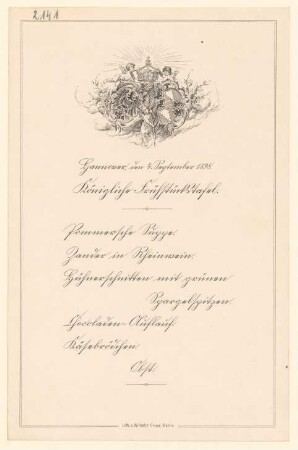 2141
Hannover, den 4. September 1898.
Königliche Frühstückstafel.
Pommersche Suppe.
Zander in Rheinwein.
Hühnerschnitten mit grünen
Spargelspitzen.
Chocoladen-Auflauf.
Käsebrödchen.
Obst.